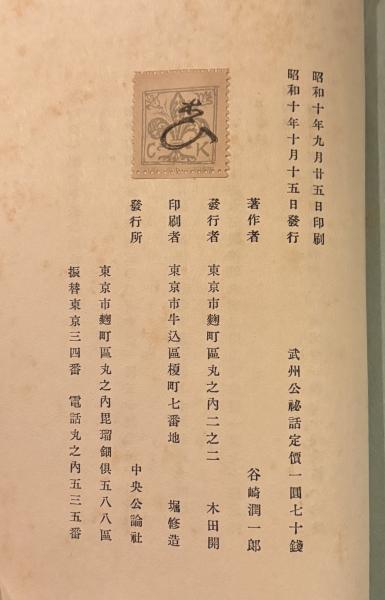 昭和十年九月廿五日印刷
昭和十年十月十五日發行
武州公祕話定價一圓七十錢
著作者 谷崎潤一郎
發行者 東京市麴町區丸之內二之二 木田開
印刷者 東京市牛込區榎町七番地 堀修造
發行所 中央公論社
東京市麴町區丸之內毘瑠䤪俱五八八區
振替東京三四番 電話丸之內五三五番
C K